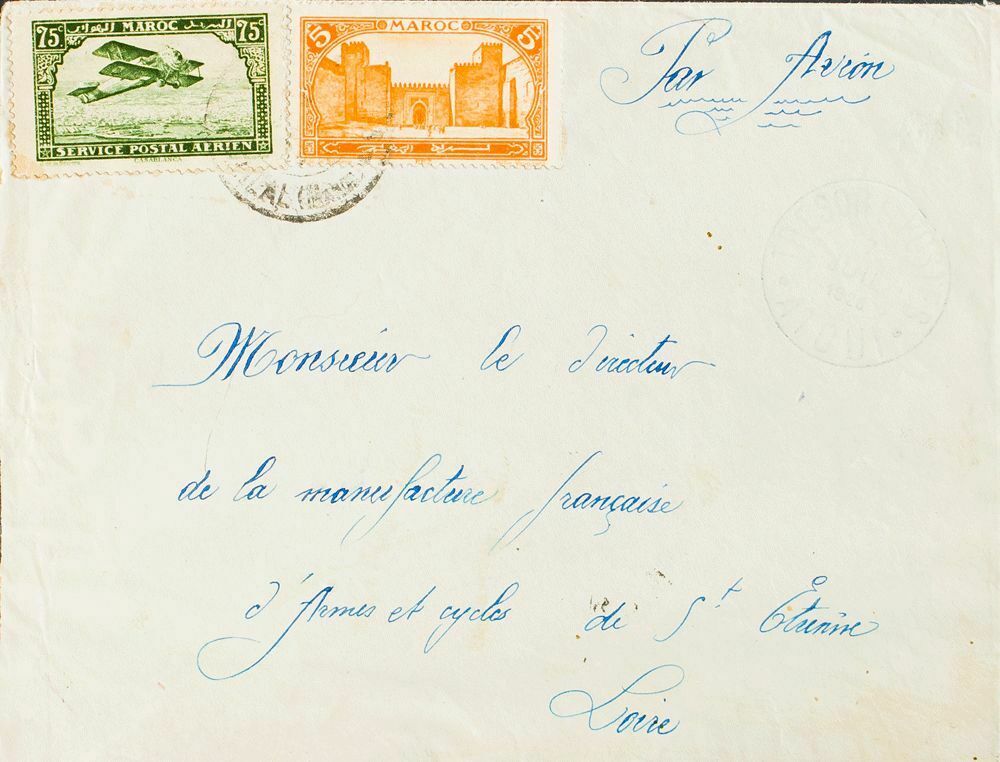 75 MAROC البريد الجوي 75
SERVICE POSTAL AERIEN
CASABLANCA
5 MAROC 5
Par Avion
1926
Monsieur le directeur
de la manufacture française
d'Armes et cycles de St Étienne
Loire